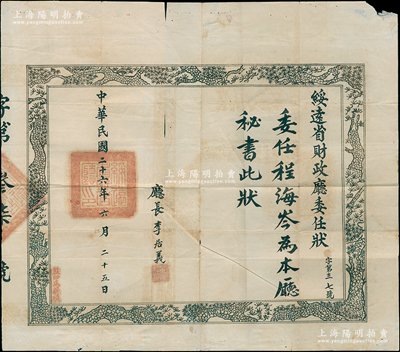 上海陽明拍賣
www.ymauction.com
綏遠省財政廳委任狀
字第三七號
委任程海岑為本廳
秘書此狀
廳長李居義
中華民國二十六年六月二十五日
字第叁柒號